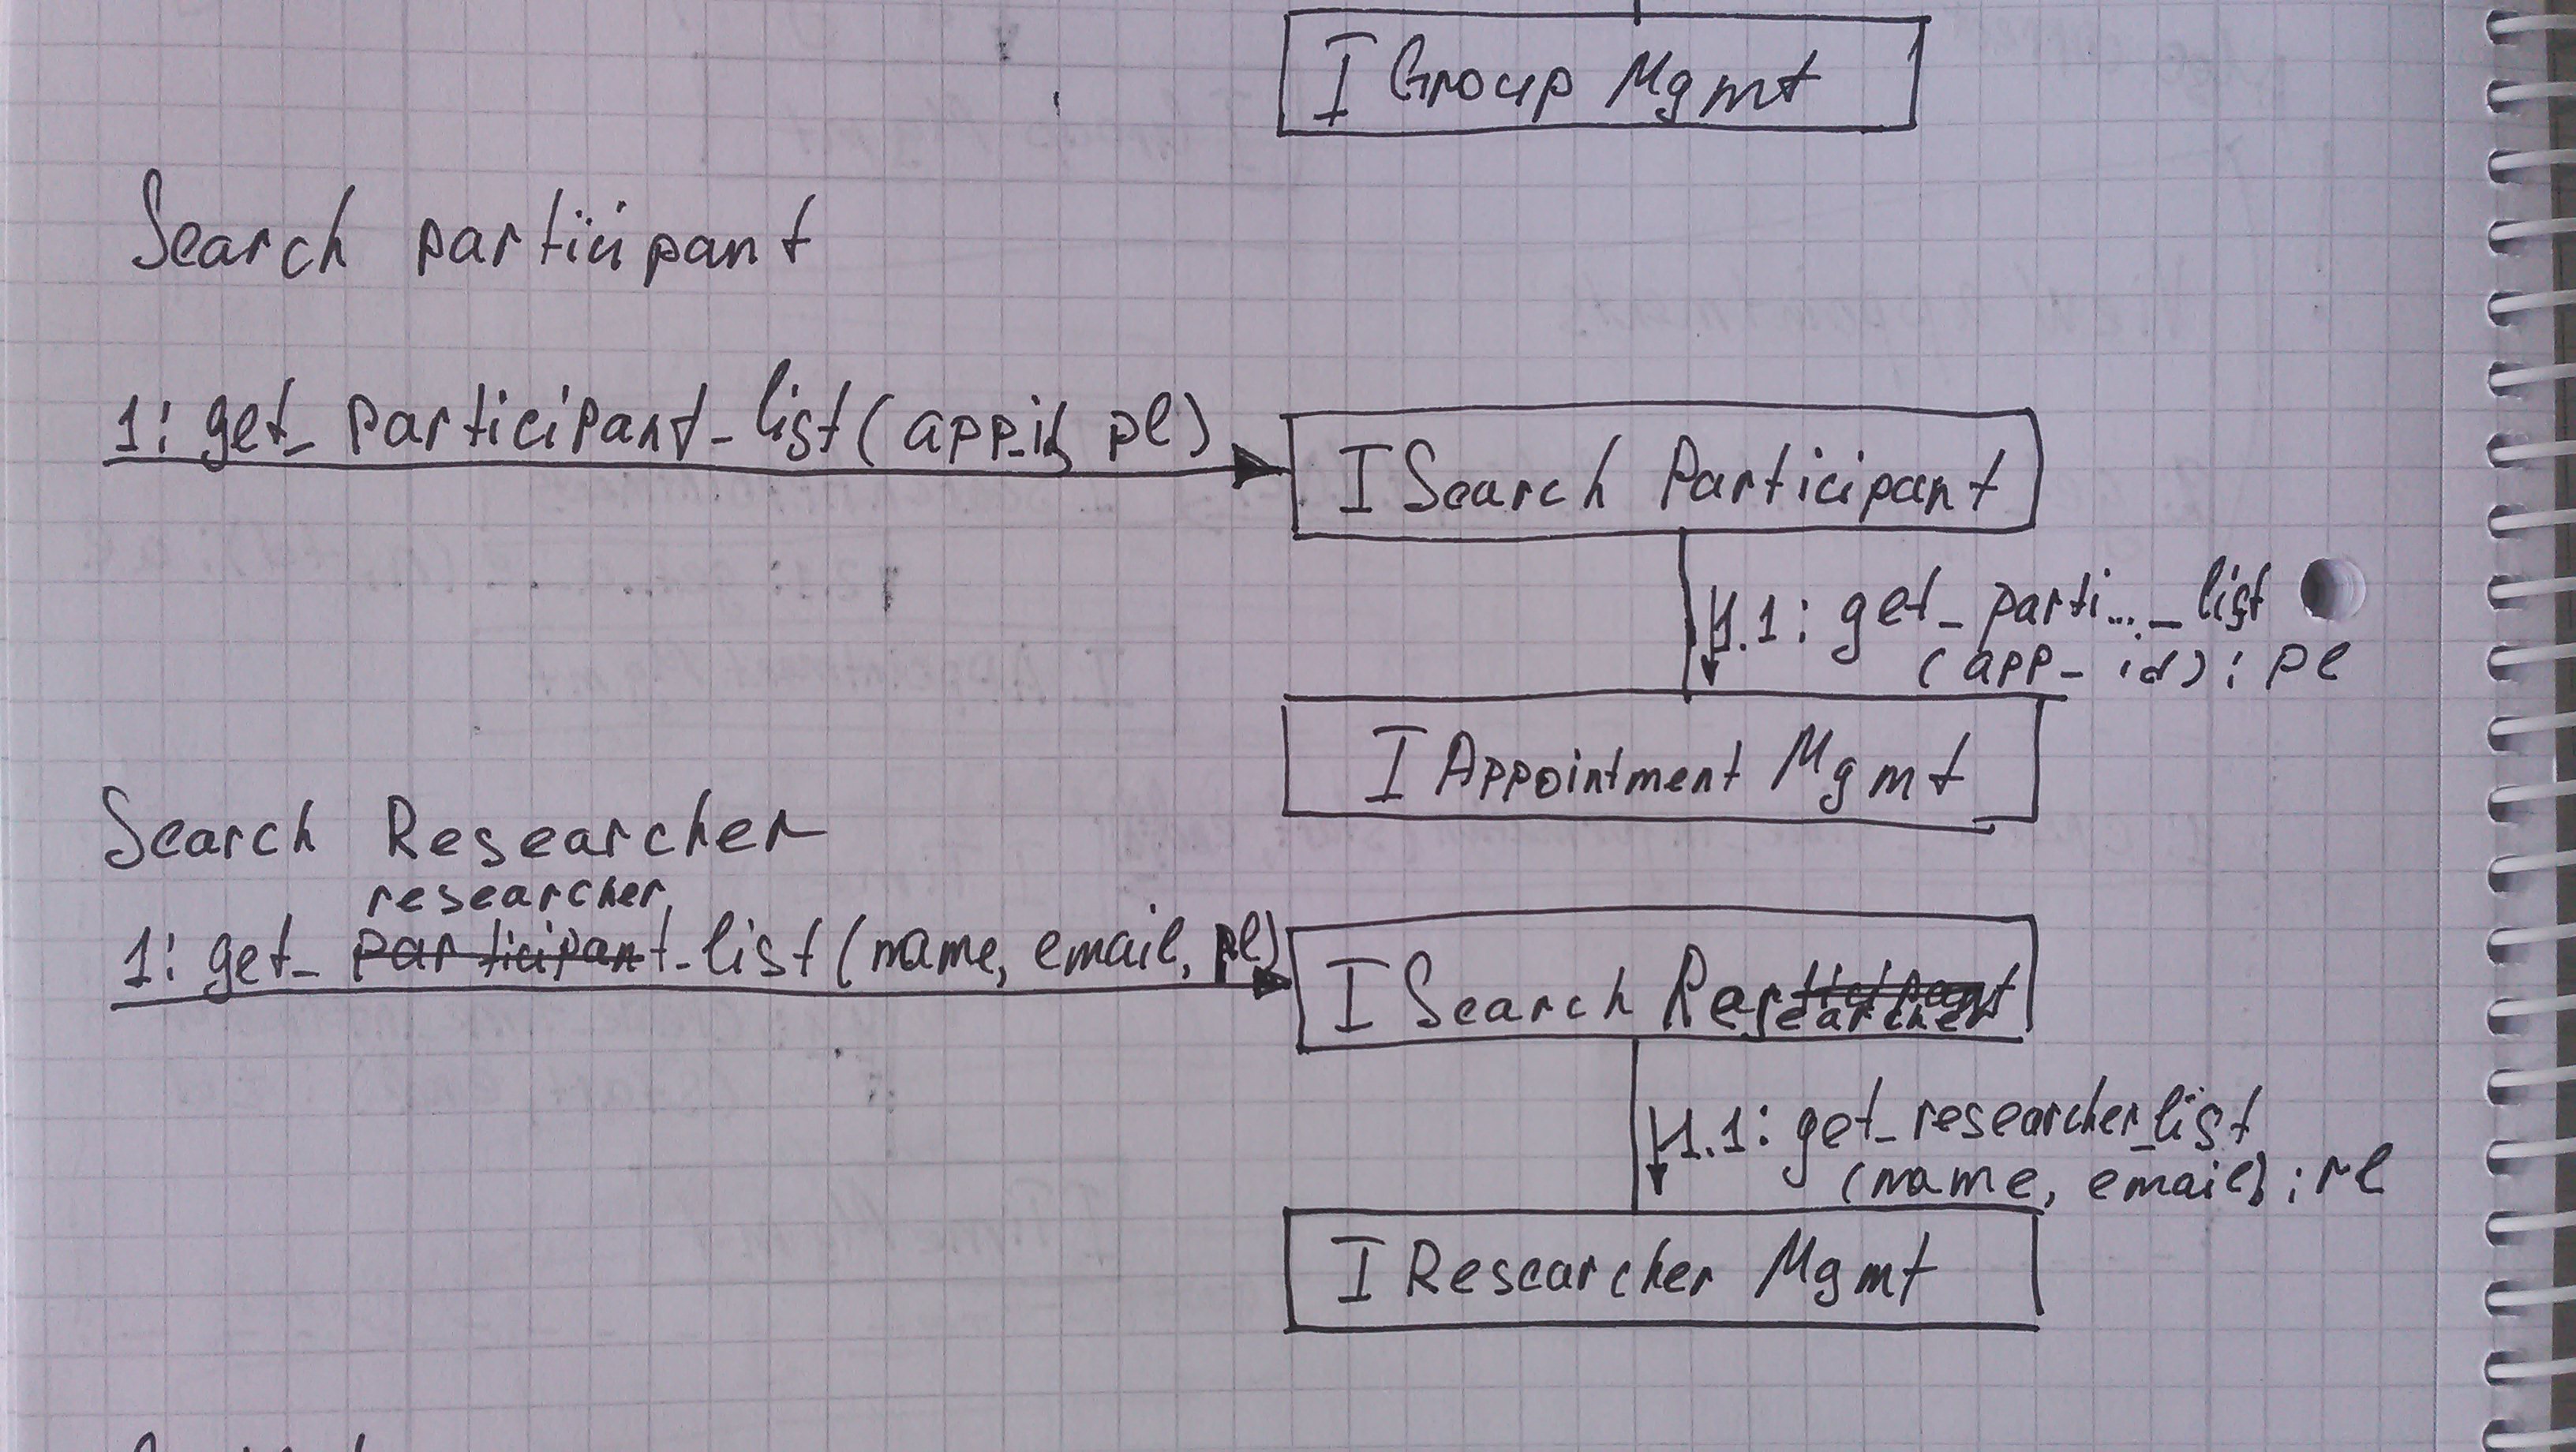 I Group Mgmt
Search partiipant
1: get_participant_list(app_id, pl)
I Search Participant
1.1: get_parti..._list
(app_id): pl
I Appointment Mgmt
Search Researcher
researcher
1: get_participant_list(name, email, pl)
I Search
1.1: get_researcher_list
(name, email): rl
I Researcher Mgmt